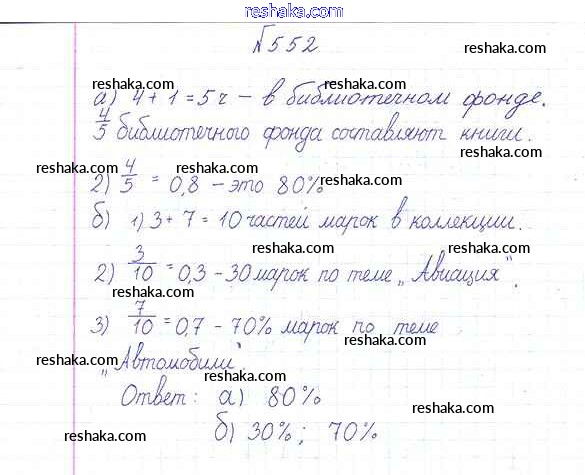 reshaka.com
№552
reshaka.com
reshaka.com reshaka.com
а) 4+1=5ч – в библиотечном фонде.
reshaka.com
4/5 библиотечного фонда составляют книги.
reshaka.com reshaka.com reshaka.com
2) 4/5 = 0,8 – это 80%
reshaka.com
б) 1) 3+7=10 частей марок в коллекции.
reshaka.com reshaka.com
2) 3/10 = 0,3 – 30 марок по теме „Авиация".
reshaka.com
3) 7/10 = 0,7 – 70% марок по теме
reshaka.com reshaka.com
„Автомобили".
reshaka.com
Ответ: а) 80%
reshaka.com
б) 30%; 70%
reshaka.com reshaka.com